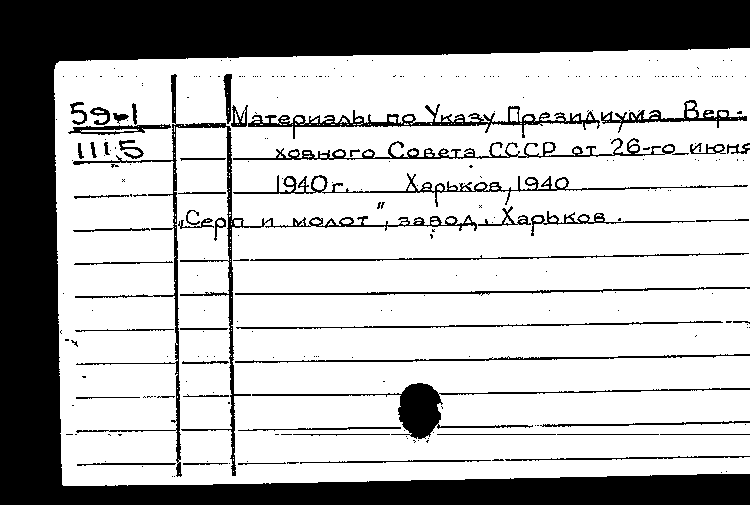 59-1
1115
Материалы по Указу Президиума Вер-
ховного Совета СССР от 26-го июня
1940г. Харьков, 1940
„Серп и молот", завод. Харьков.